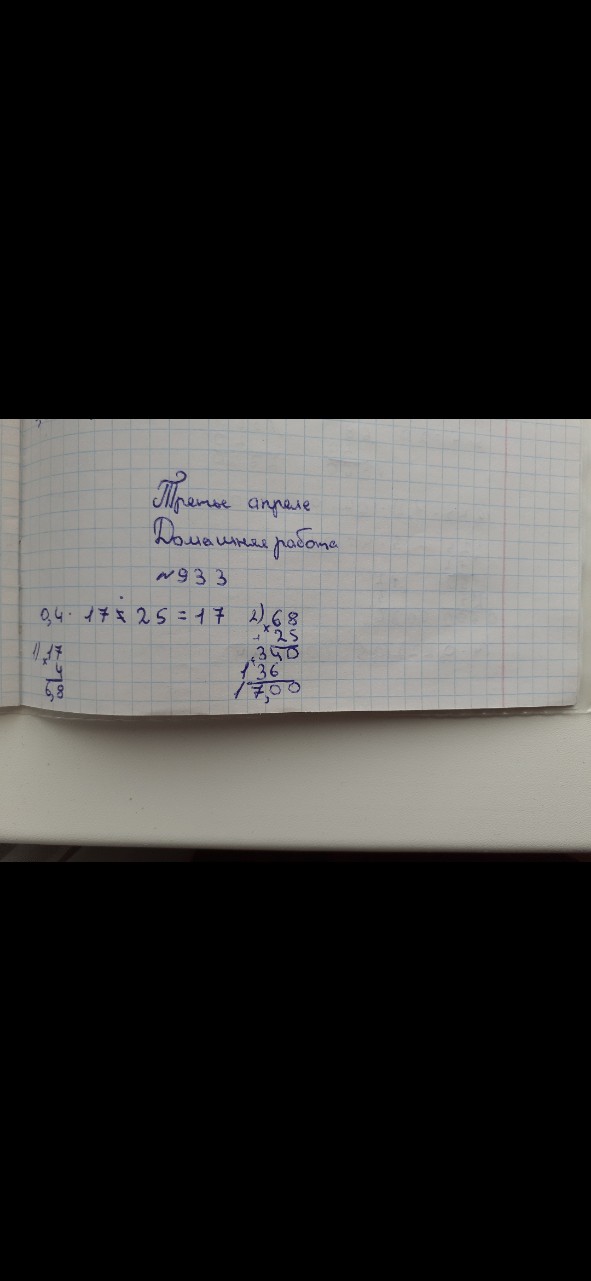 Третье апреле
Домашняя работа
№933
0,4 · 17 · 25 = 17
1) × 17
4
6,8
2) × 68
25
+ 340
136
17,00